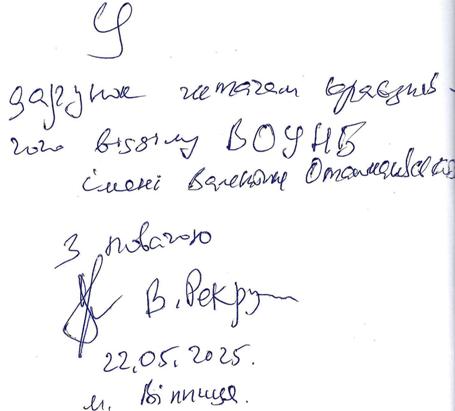 У
дарунок читачам краєзнав-
чого відділу ВОУНБ
імені Валентина Отамановського
З повагою
В. Рекрут
22.05.2025.
м. Вінниця.